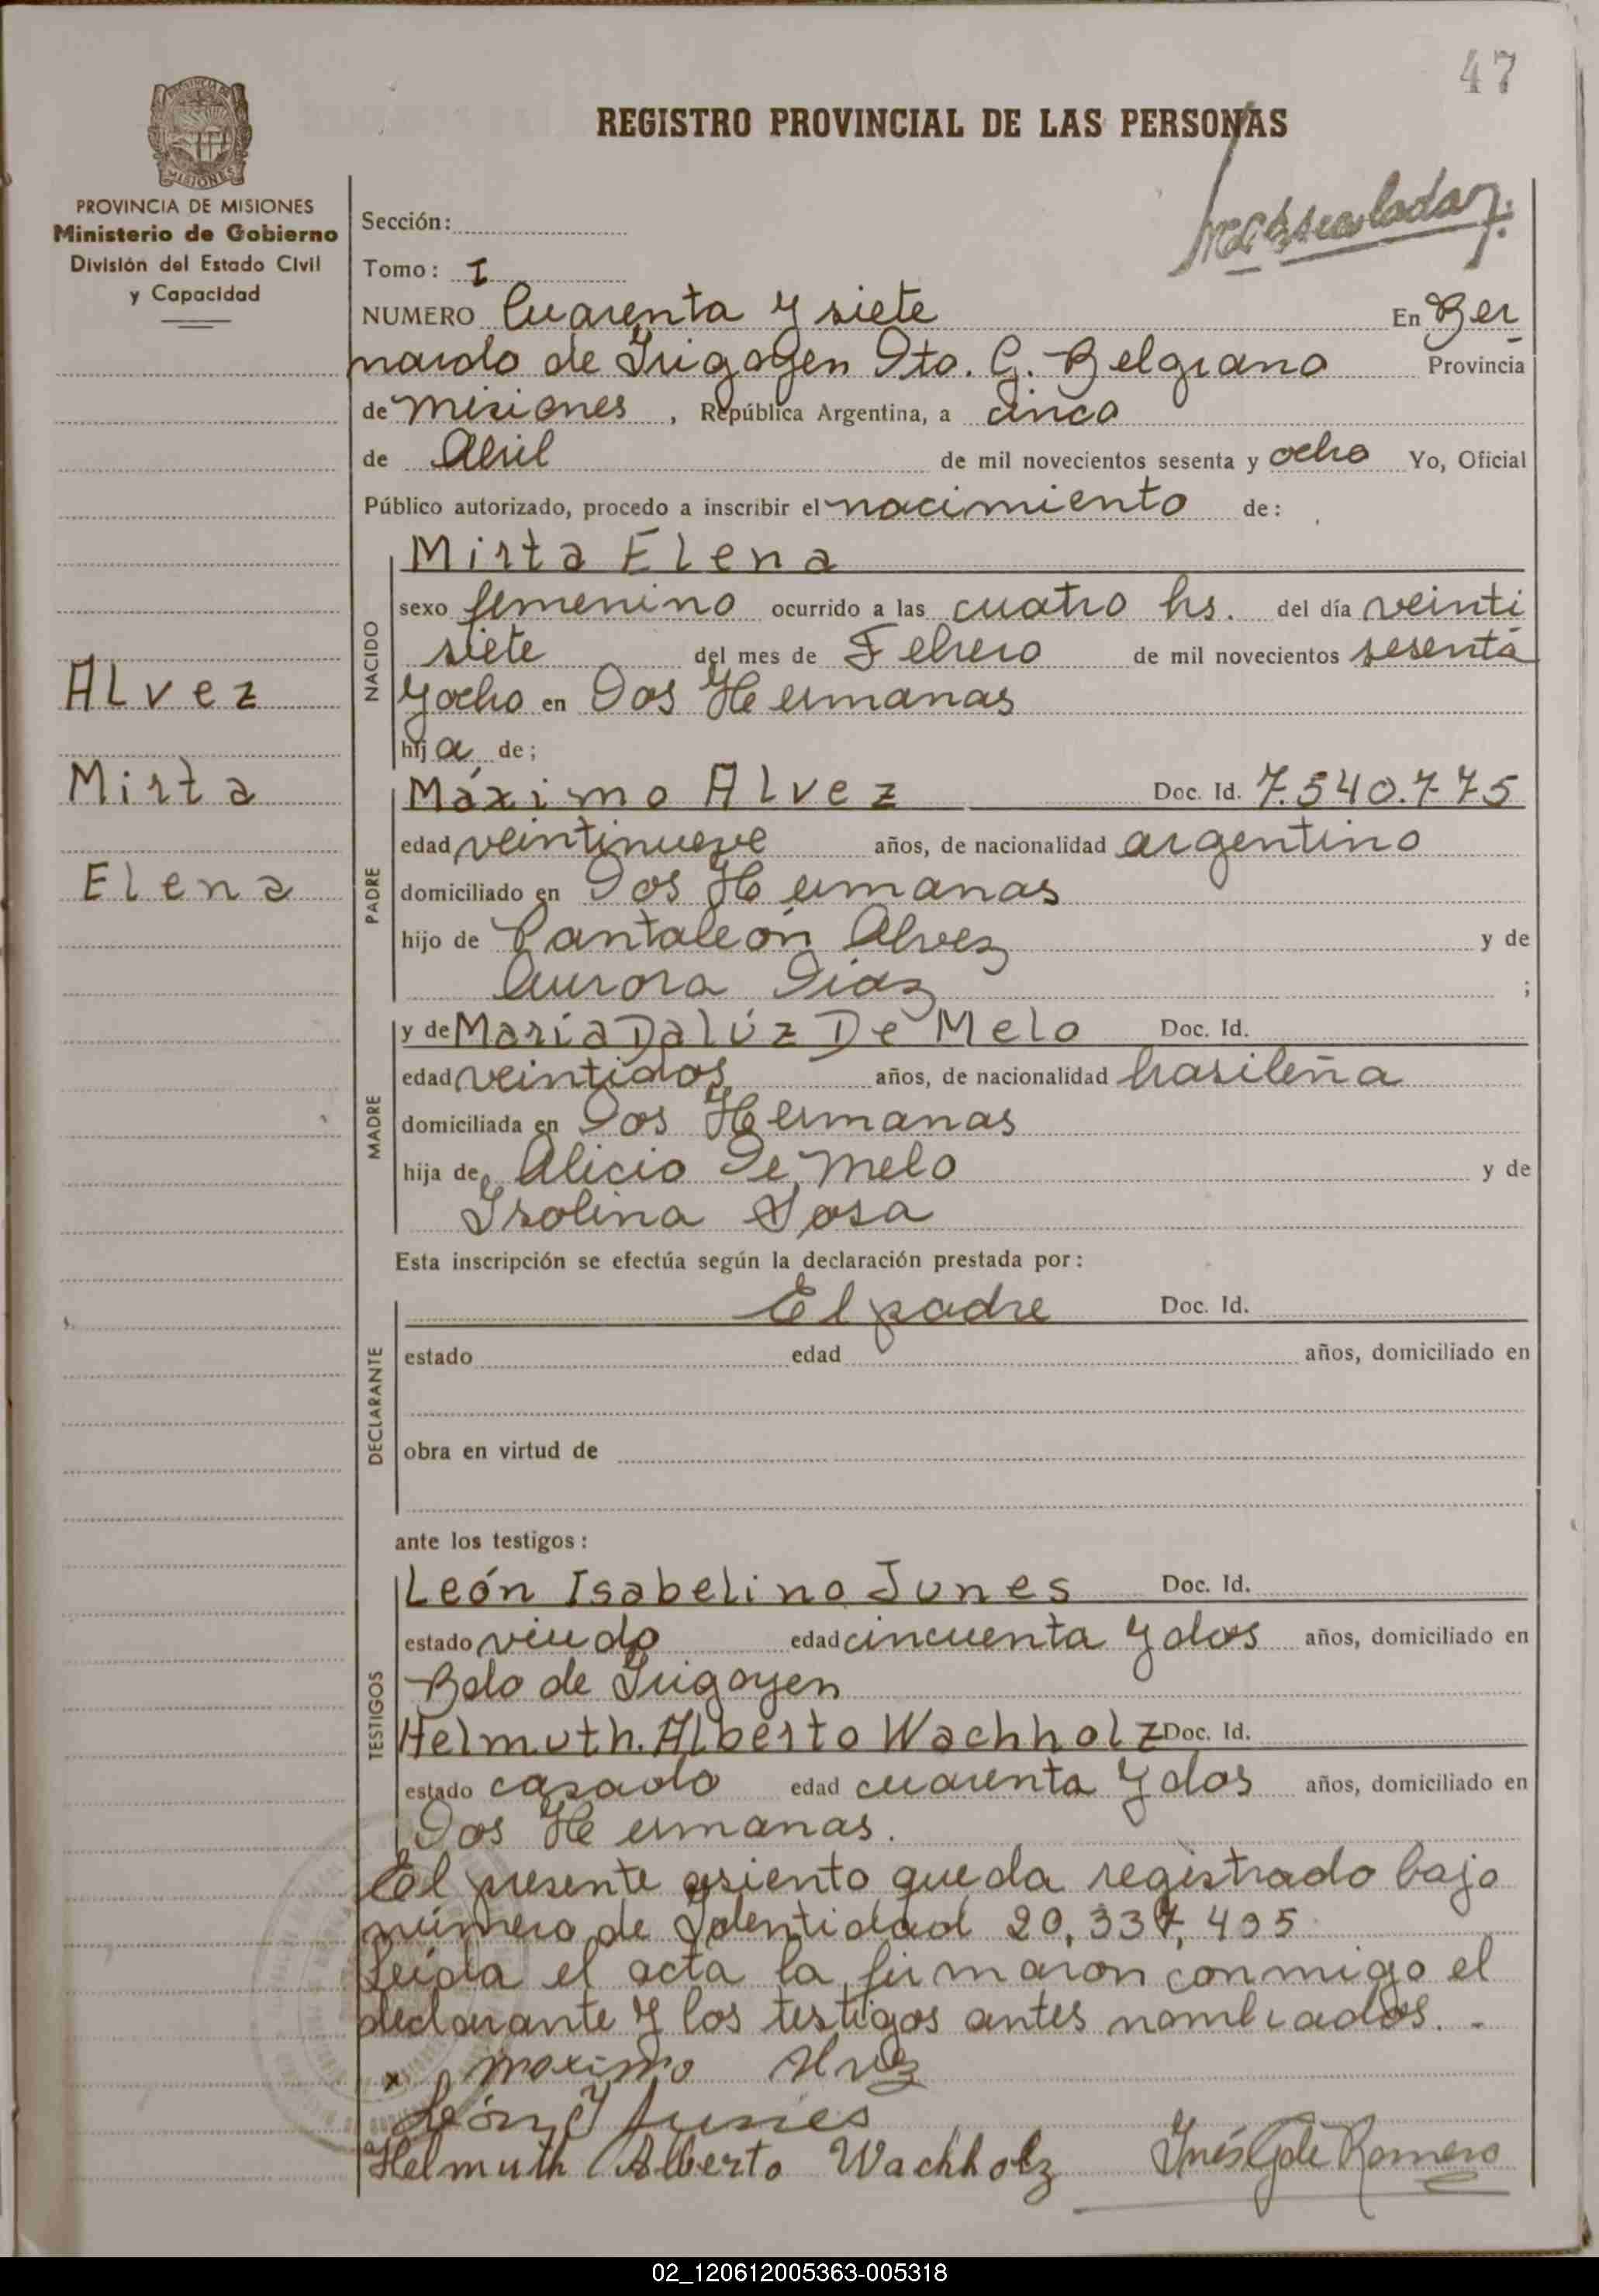 47
REGISTRO PROVINCIAL DE LAS PERSONAS
MISIONES
PROVINCIA DE MISIONES
Ministerio de Gobierno
División del Estado Civil
y Capacidad
Sección:
Tomo: I
NUMERO Cuarenta y siete En Ber
nardo de Irigoyen Dto. G. Belgrano Provincia
de Misiones, República Argentina, a cinco
de Abril de mil novecientos sesenta y ocho Yo, Oficial
Público autorizado, procedo a inscribir el nacimiento de:
Mirta Elena
NACIDO
sexo femenino ocurrido a las cuatro hs. del día veinti
siete del mes de Febrero de mil novecientos sesenta
y ocho en Dos Hermanas
hija de;
Alvez
Mirta
Elena
PADRE
Máximo Alvez Doc. Id. 7.540.775
edad veintinueve años, de nacionalidad argentino
domiciliado en Dos Hermanas
hijo de Pantaleón Alvez y de
Aurora Diaz ;
MADRE
y de María Dalúz De Melo Doc. Id.
edad veintidos años, de nacionalidad brasileña
domiciliada en Dos Hermanas
hija de Alicio De Melo y de
Isolina Sosa
Esta inscripción se efectúa según la declaración prestada por:
DECLARANTE
El padre Doc. Id.
estado edad años, domiciliado en
obra en virtud de
ante los testigos:
TESTIGOS
León Isabelino Junes Doc. Id.
estado viudo edad cincuenta y dos años, domiciliado en
Bdo de Irigoyen
Helmuth Alberto Wachholz Doc. Id.
estado casado edad cuarenta y dos años, domiciliado en
Dos Hermanas.
El presente asiento queda registrado bajo
número de Identidad 20,337,495
Leida el acta la firmaron conmigo el
declarante y los testigos antes nombrados. -
x maximo Alvez
León I Junes
Helmuth Alberto Wachholz Inés G de Romero
02_120612005363-005318